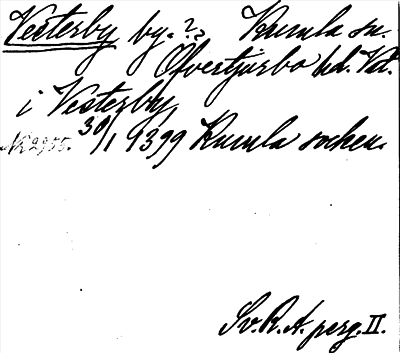 Vesterby by. ? Kumla sn.
Öfvertjurbo hd. Vstm.
i Vesterby
Nr 2955. 30/1 1399 Kumla socken.
Sv. R. A. perg. II.